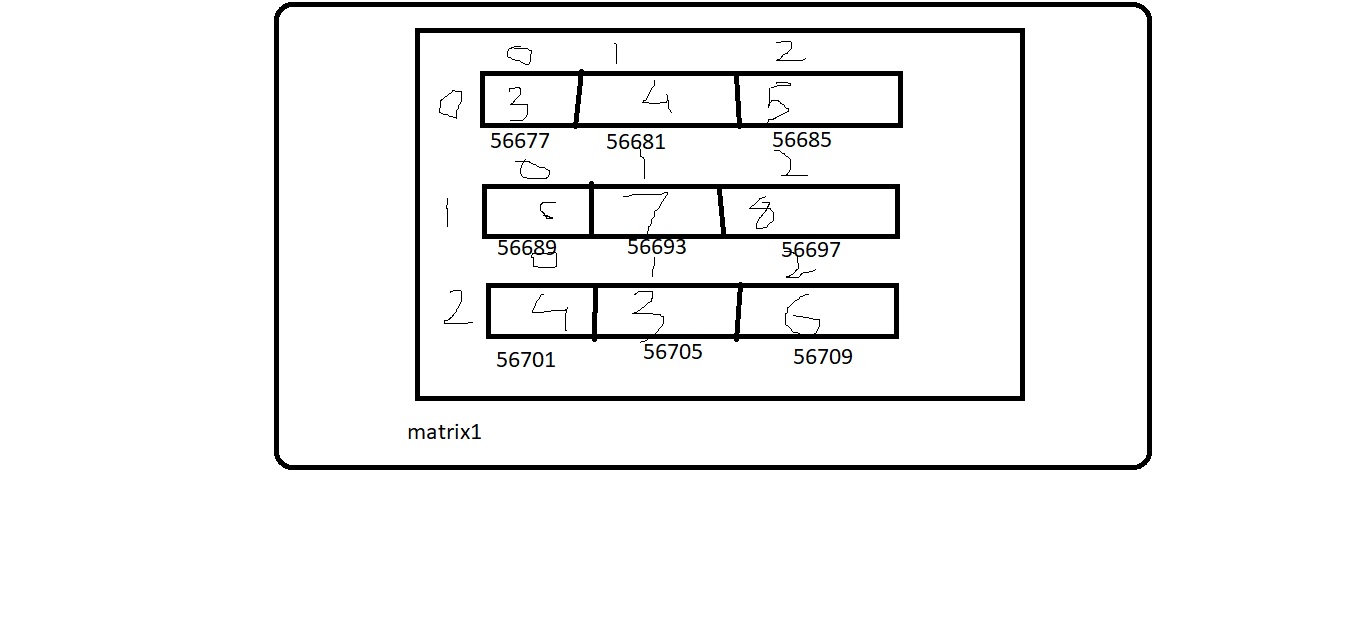 0 1 2
0 3 4 5
56677 56681 56685
0 1 2
1 7 8
56689 56693 56697
0 1 2
2 4 3 6
56701 56705 56709
matrix1